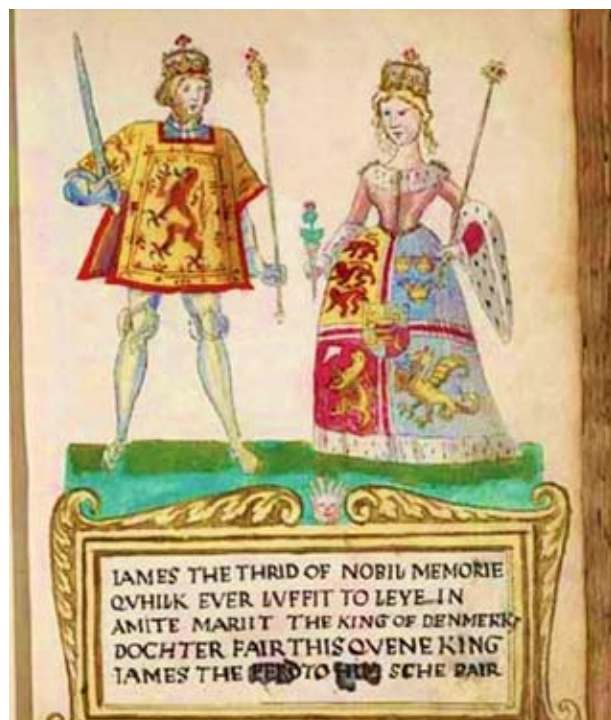 IAMES THE THRID OF NOBIL MEMORIE
QVHILK EVER LVFFIT TO LEYE IN
AMITE MARIIT THE KING OF DENMERK
DOCHTER FAIR THIS QVENE KING
IAMES THE TO SCHE BAIR